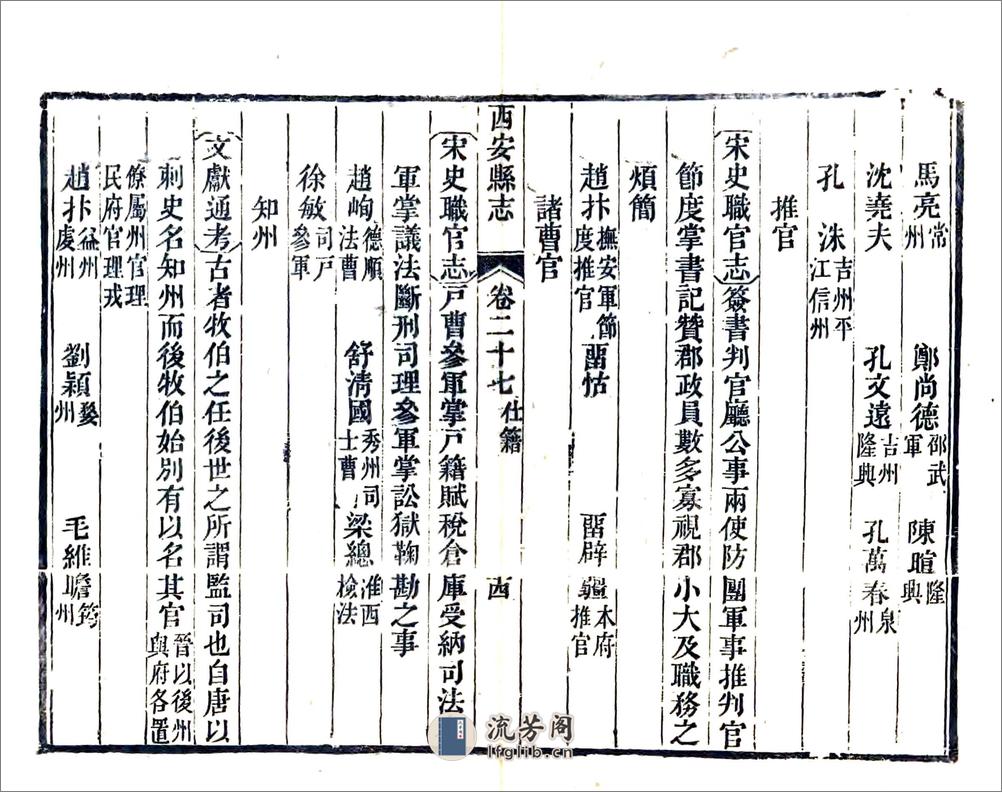 馬亮常州　鄭尚德邵武軍　陳暄隆興
沈堯夫　孔文遠吉州隆興　孔萬春泉州
孔洙吉州平江信州
推官
宋史職官志簽書判官廳公事兩使防團軍事推判官
節度掌書記贊郡政員數多寡視郡小大及職務之
煩簡
趙抃撫安軍節度推官　畱怙　畱辟疆本府推官
諸曹官
西安縣志　卷二十七　仕籍　西
宋史職官志戸曹參軍掌戸籍賦稅倉庫受納司法
軍掌議法斷刑司理參軍掌訟獄鞠勘之事
趙峋德順法曹　舒淸國秀州司士曹　梁總淮西檢法
徐敏司戸參軍
知州
文獻通考古者牧伯之任後世之所謂監司也自唐以
刺史名知州而後牧伯始別有以名其官晉以後州與府各置
僚屬州官理民府官理戎
趙抃益州虔州　劉穎婺州　毛維瞻筠州
流芳阁
lfglib.cn